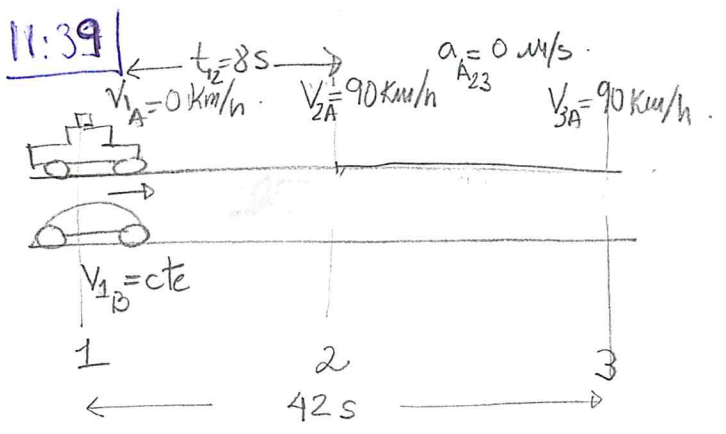 11:39
t₁₂=8s
a_A₂₃=0 m/s.
V₁A=0 Km/h.
V₂A=90 Km/h
V₃A=90 Km/h.
V₁B=cte
1 2 3
42 s